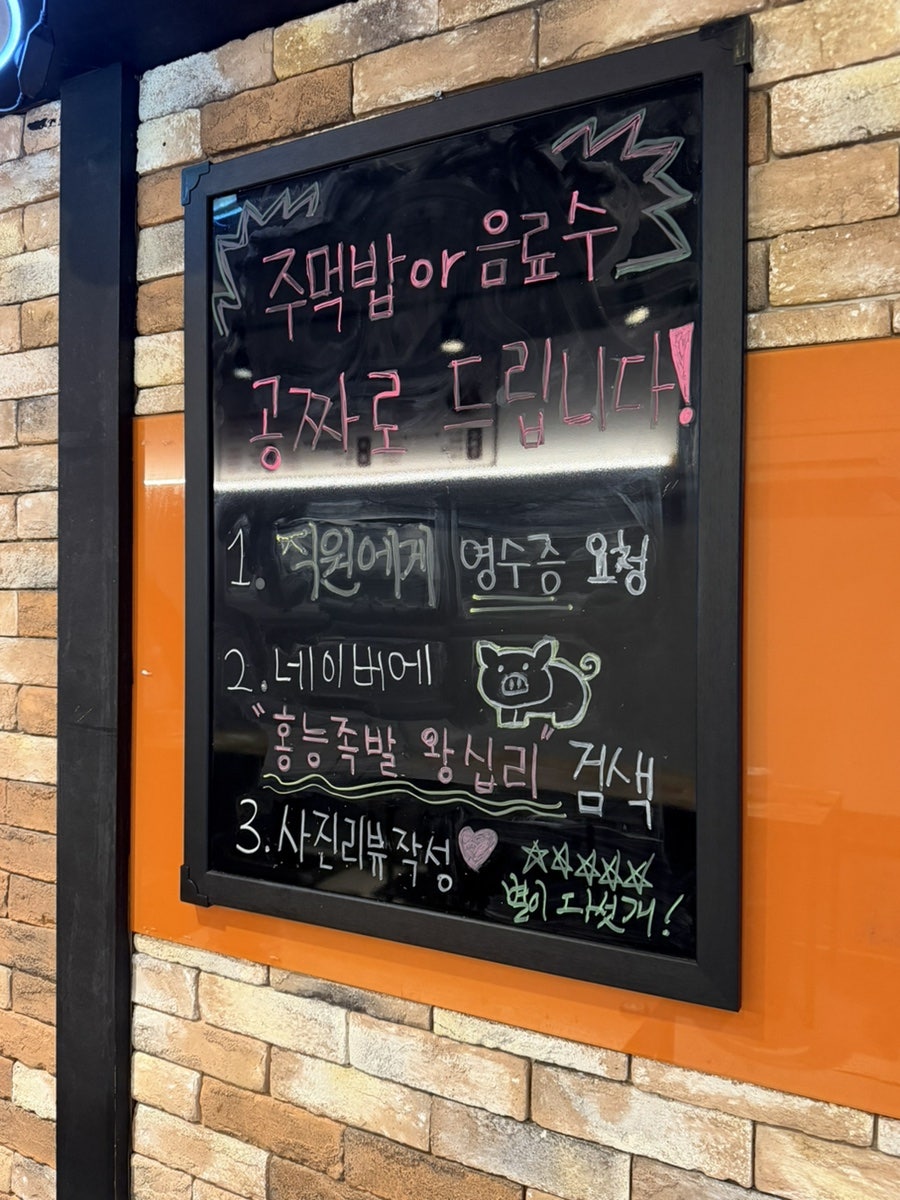 주먹밥 or 음료수
공짜로 드립니다!
1. 직원에게 영수증 요청
2. 네이버에
"홍능족발 왕십리" 검색
3. 사진리뷰작성
별이 다섯개!